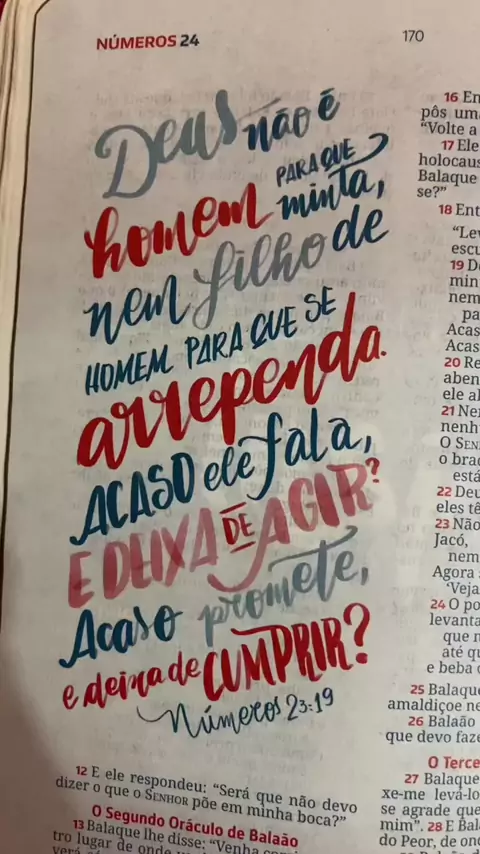 NÚMEROS 24
170
Deus não é
homem PARA QUE
minta,
nem filho de
HOMEM PARA QUE SE
arrependa.
ACASO ele fala,
E DEIXA DE AGIR?
Acaso promete,
e deixa de CUMPRIR?
Números 23:19
12 E ele respondeu: “Será que não devo
dizer o que o SENHOR põe em minha boca?”
O Segundo Oráculo de Balaão
13 Balaque lhe disse: “Venha
tro lugar de onde
verá
16 En
pôs uma
“Volte a
17 Ele
holocaus
Balaque
se?”
18 Ent
“Lev
escu
19 D
min
nem
pa
Acas
Acas
20 Re
aben
ele al
21 Ne
nenh
O SEN
o bra
está
22 Deu
eles tê
23 Não
Jacó,
nem
Agora
‘Veja
24 O po
levanta
que n
até qu
e beba
25 Balaque
amaldiçoe ne
26 Balaão
que devo faze
O Terce
27 Balaque
xe-me levá-lo
se agrade que
mim”. 28 E Bal
do Peor, de ond